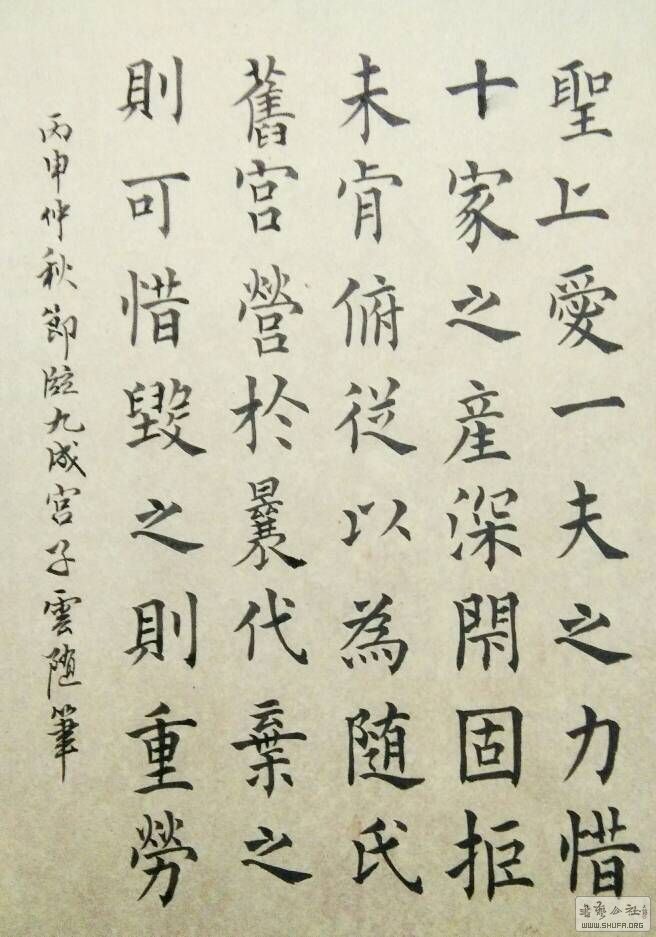 聖上愛一夫之力惜
十家之產深閇固拒
未肯俯從以為随氏
舊宮營於曩代棄之
則可惜毀之則重勞
丙申仲秋節臨九成宮子雲随筆
WWW.SHUFA.ORG